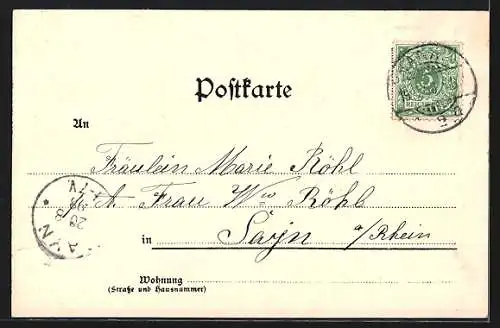 Postkarte
5
An
Fräulein Marie Röhl
Frau Ww Röhl
in Sayn a/Rhein
Wohnung
(Straße und Hausnummer)
AYN